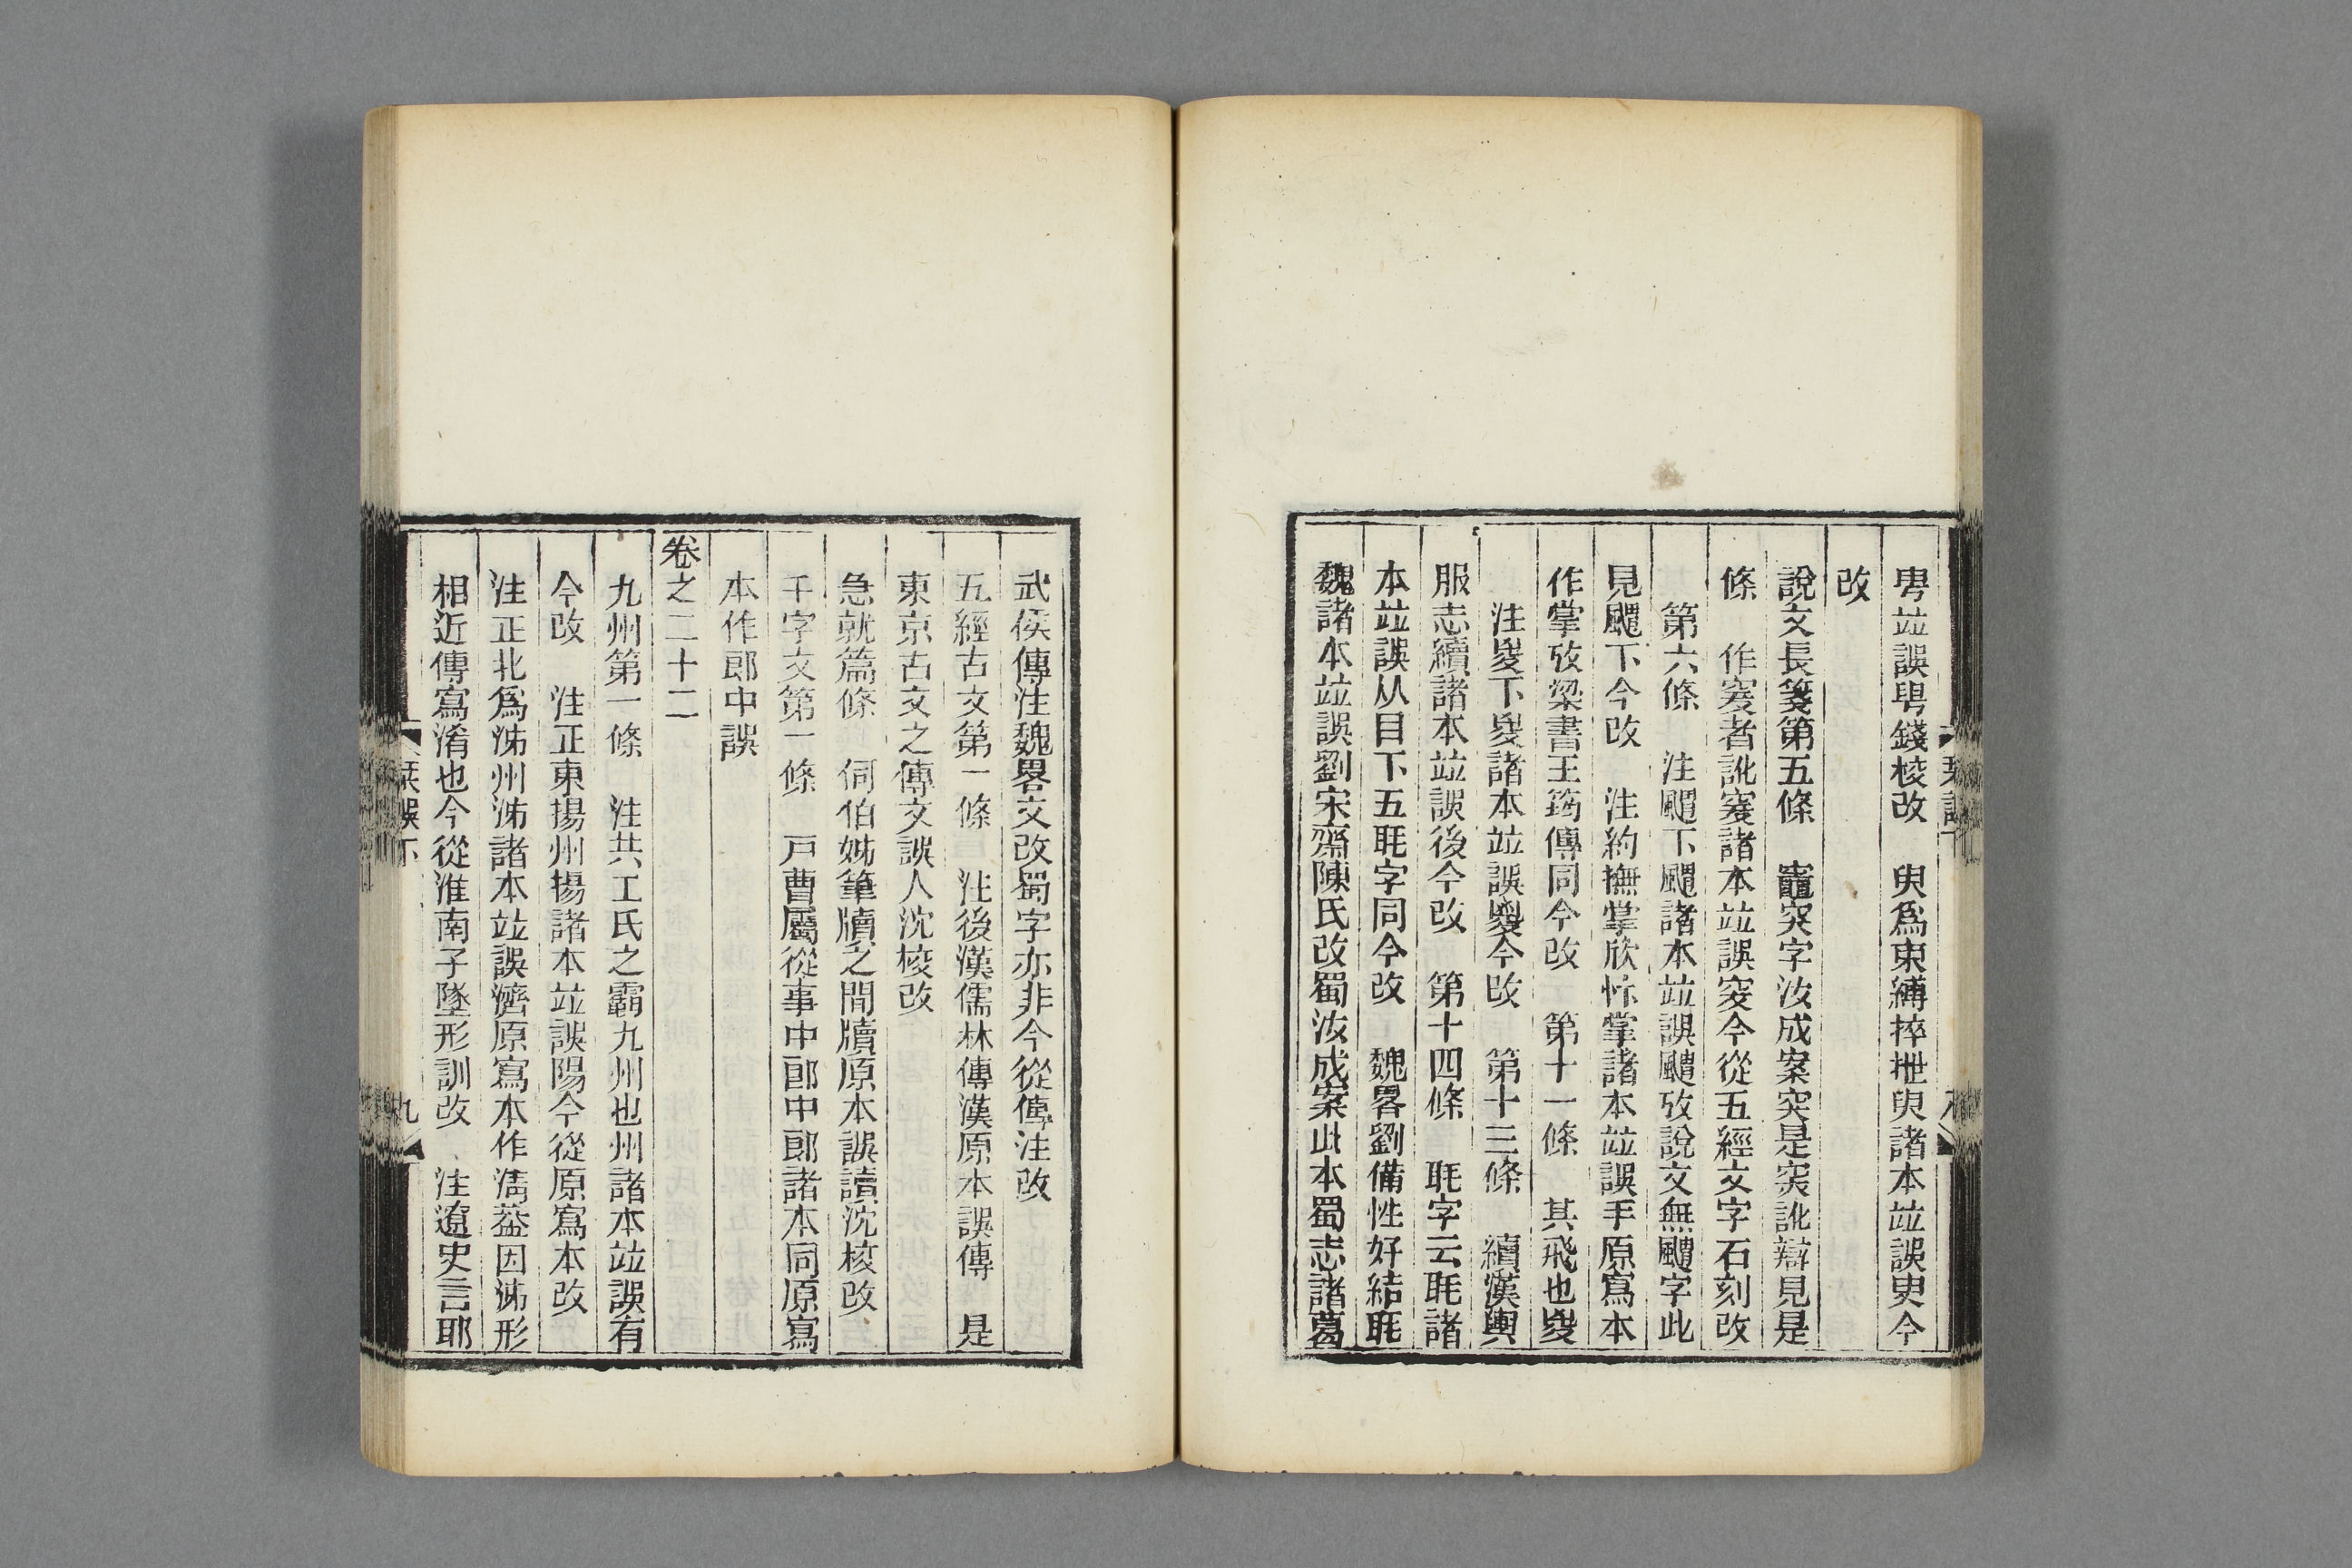 甹竝誤聘錢校改　臾爲束縛捽抴臾諸本竝誤曳今
改
說文長箋第五條　竈突字汝成案突是㝔訛辯見是
條　作㝔者訛㝔諸本竝誤㝔今從五經文字石刻改
第六條　注颶下颶諸本竝誤颶攷說文無颶字此
見颶下今改　注約撫掌欣忭掌諸本竝誤手原寫本
作掌攷梁書王筠傳同今改　第十一條　其飛也㚇
注㚇下㚇諸本竝誤㚇今改　第十三條　續漢輿
服志續諸本竝誤後今改　第十四條　毦字云毦諸
本竝誤从目下五毦字同今改　魏畧劉備性好結毦
魏諸本竝誤劉宋齋陳氏改蜀汝成案此本蜀志諸葛
武侯傳注魏畧文改蜀字亦非今從傳注改
五經古文第一條　注後漢儒林傳漢原本誤傳　是
東京古文之傳文誤人沈校改
急就篇條　伺伯姊筆牘之閒牘原本誤讀沈校改
千字文第一條　戸曹屬從事中郎中郎諸本同原寫
本作郎中誤
卷之二十二
九州第一條　注共工氏之霸九州也州諸本竝誤有
今改　注正東揚州揚諸本竝誤陽今從原寫本改
注正北爲泲州泲諸本竝誤濟原寫本作淸葢因泲形
相近傳寫淆也今從淮南子墬形訓改　注遼史言耶
栞誤下
九